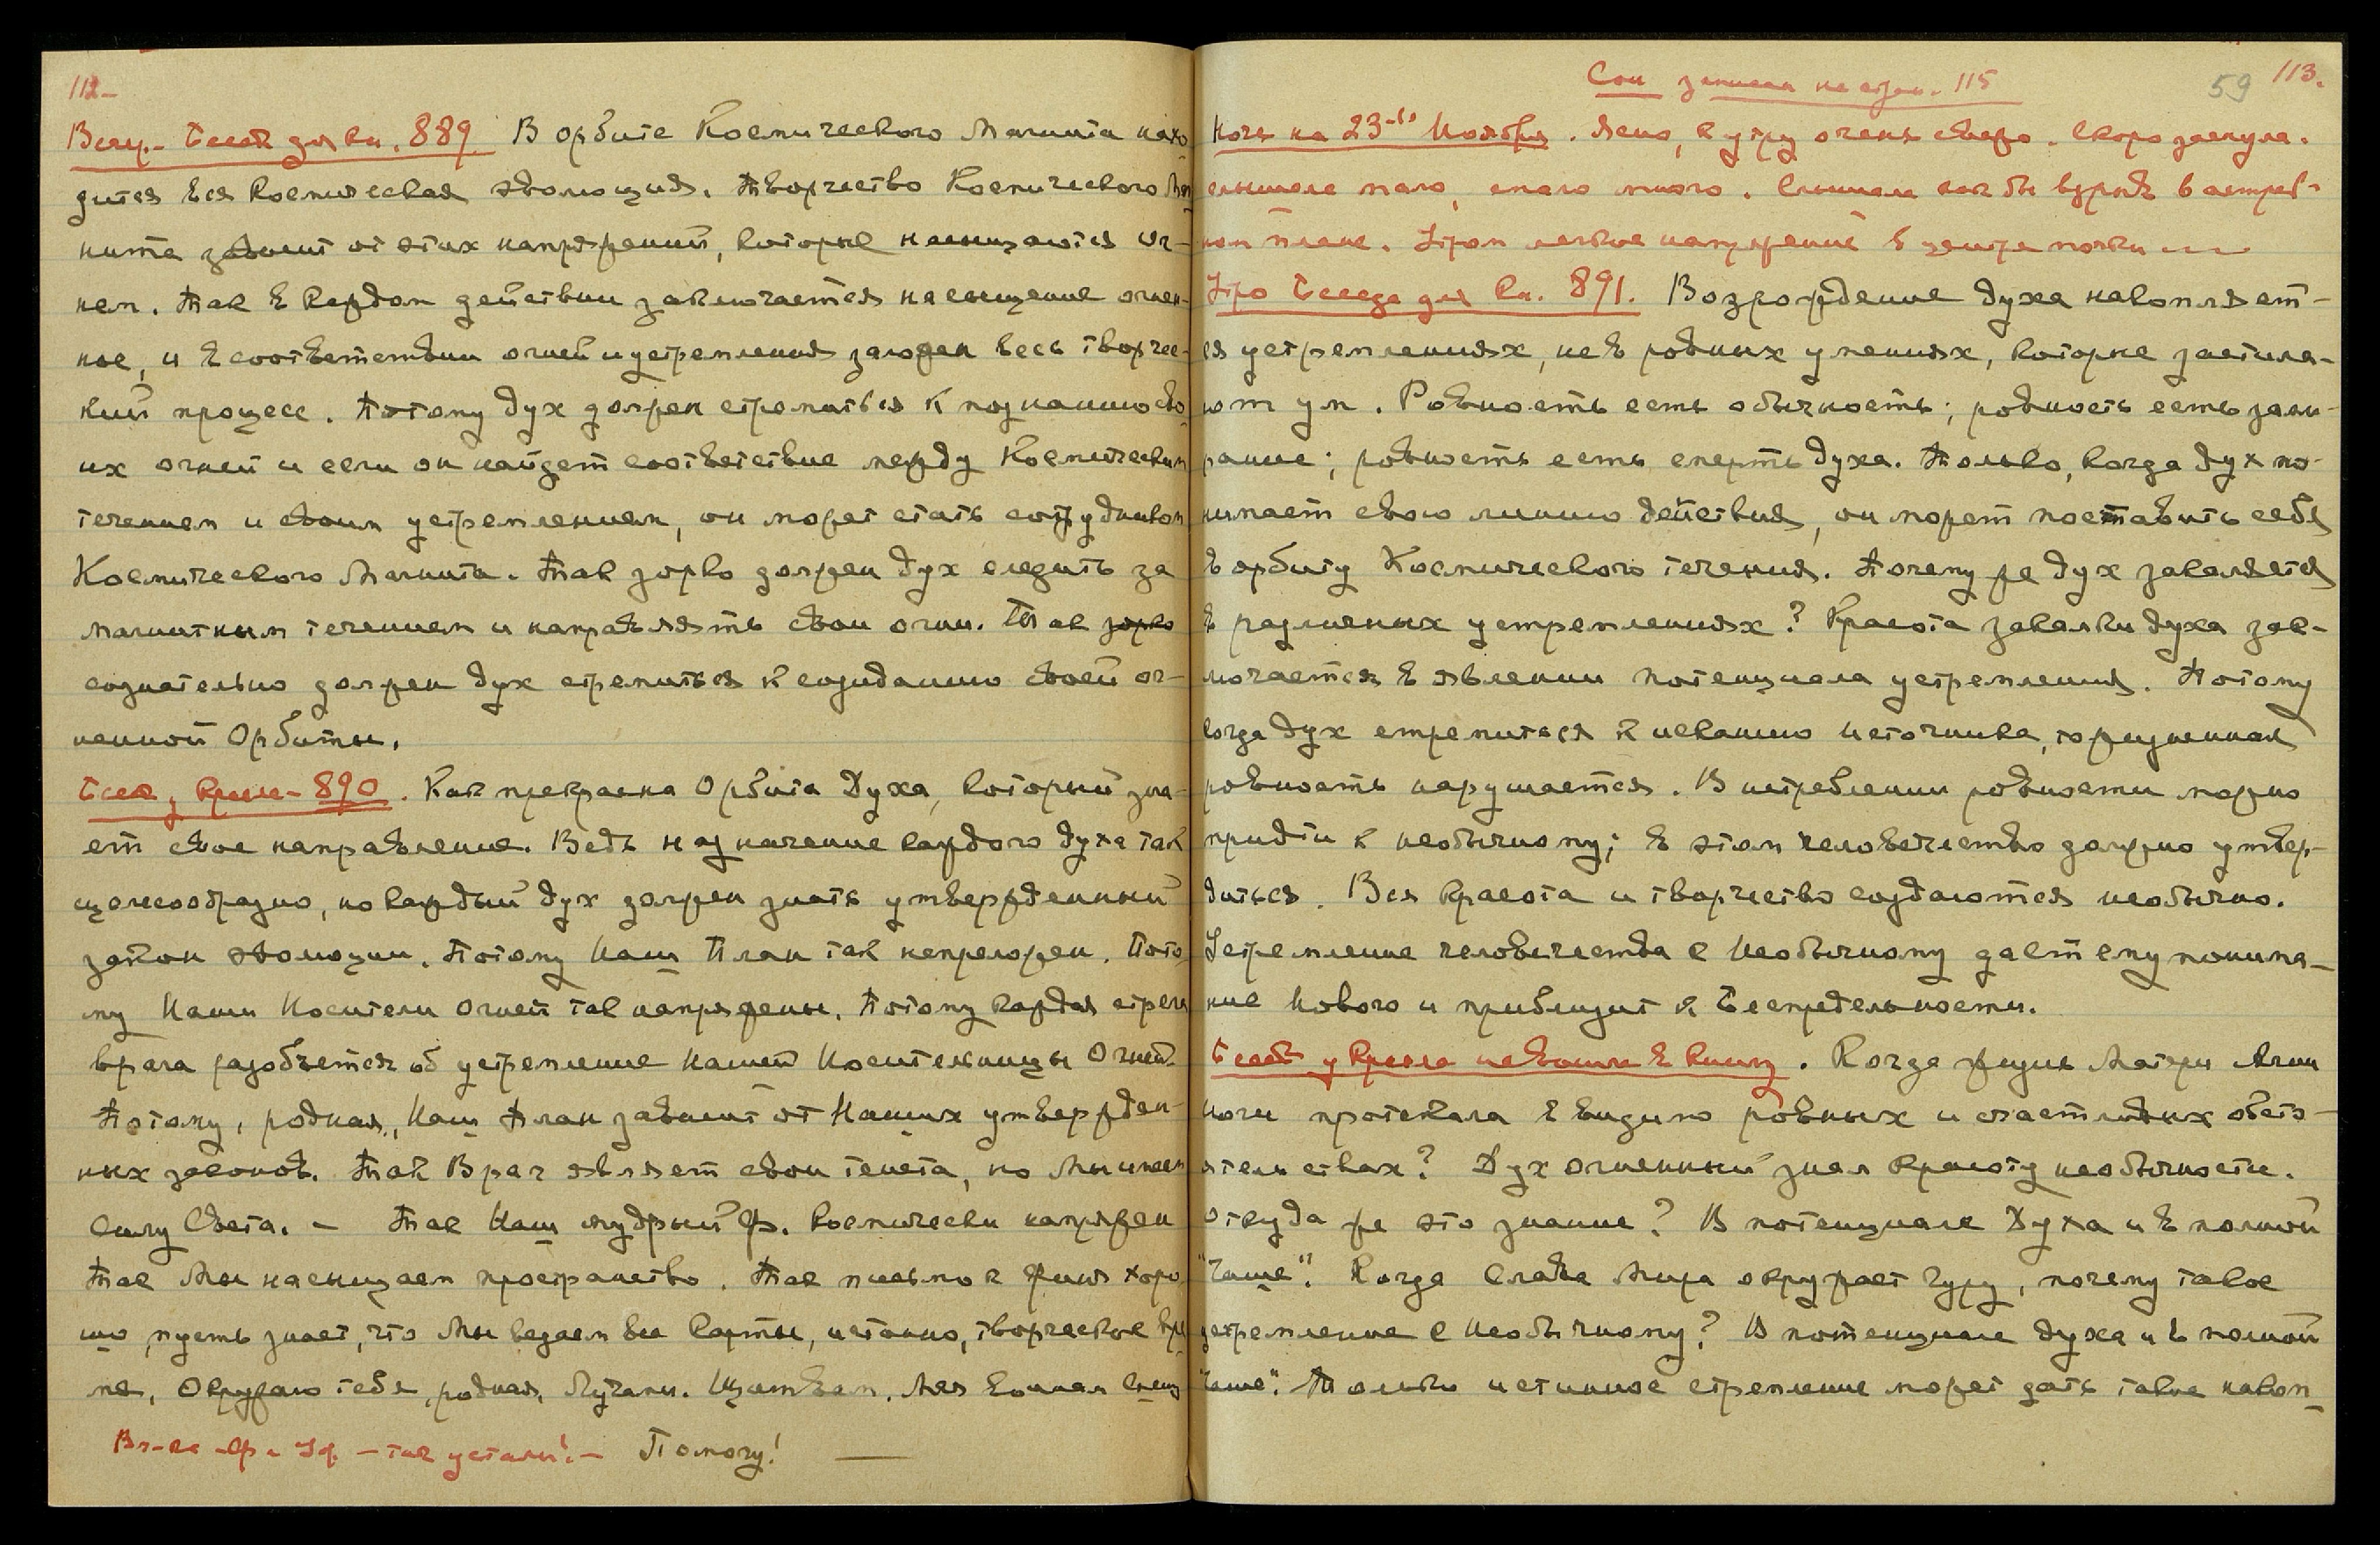 112-
Веч.- Бесед для Кн. 889. В орбите Космического Магнита нахо-
дится вся Космическая эволюция. Творчество Космического Маг-
нита зависит от этих напряжений, которые насыщаются ог-
нем. Так в каждом действии заключается насыщение огнен-
ное, и в соответствии огней и устремления заложен весь творчес-
кий процесс. Потому дух должен стремиться к познанию сво-
их огней и если он найдет соответствие между Космическим
течением и своим устремлением, он может стать сотрудником
Космического Магнита. Так зорко должен дух следить за
магнитным течением и направлять свои огни. Так зорко
сознательно должен дух стремиться к созиданию своей ог-
ненной Орбиты.
Бесед у Кресла- 890. Как прекрасна Орбита Духа, который зна-
ет свое направление. Ведь назначение каждого духа так
целесообразно, но каждый дух должен знать утвержденный
закон эволюции. Потому Наш План так непреложен. Пото-
му Наши Носители Огней так напряжены. Потому каждая стрела
врага разобьется об устремление Нашей Носительницы Огней.
Потому, родная, Наш План зависит от Наших утвержден-
ных законов. Так Враг являет свои тенета, но Мы имеем
Силу Света. - Так Наш мудрый Ф. космически напряжен
Так Мы насыщаем пространство. Так письмо к Фише хоро-
шо, пусть знает, что Мы ведаем все карты, истинно, творческое вре-
мя. Окружаю тебя, родная, Лучами. Щит вам. Мая Конлан Спешу
так устали! - Помогу!
Сон записан на стран. 115
59 113.
Ночь на 23-го Ноября. Ясно, к утру очень свежо. Скоро заснула.
слышала мало, спала много. Слышала как бы взрыв в астраль-
ном плане. Утром легкое напряжение в центре почки ---
Утро Беседа для Кн. 891. Возрождение духа накопляет-
ся устремлениях, не в ровных умениях, которые застила-
ют ум. Ровность есть обычность; ровность есть зами-
рание; ровность есть смерть духа. Только, когда дух по-
нимает свою линию действия, он может поставить себя
в орбиту Космического течения. Почему же дух закаляется
в различных устремлениях? Красота закалки духа зак-
лючается в явлении потенциала устремления. Потому
когда дух стремиться к исканию Источника, то жизненная
ровность нарушается. В истреблении ровности можно
придти к необычному; в этом человечество должно утвер-
диться. Вся красота и творчество создаются необычно.
Устремление человечества к Необычному дает ему понима-
ние Нового и приблизит к Беспредельности.
Бесед у Кресла не вошли в Книгу. Когда жизнь Матери Агни
Йоги протекала в видимо ровных и счастливых обсто-
ятельствах? Дух огненный знал красоту необычности.
Откуда же это знание? В потенциале Духа и в полной
"Чаше". Когда Слава Мира окружает Гуру, почему такое
устремление к Необычному? В потенциале духа и в полной
"Чаше". Только истинное стремление может дать такое накоп-